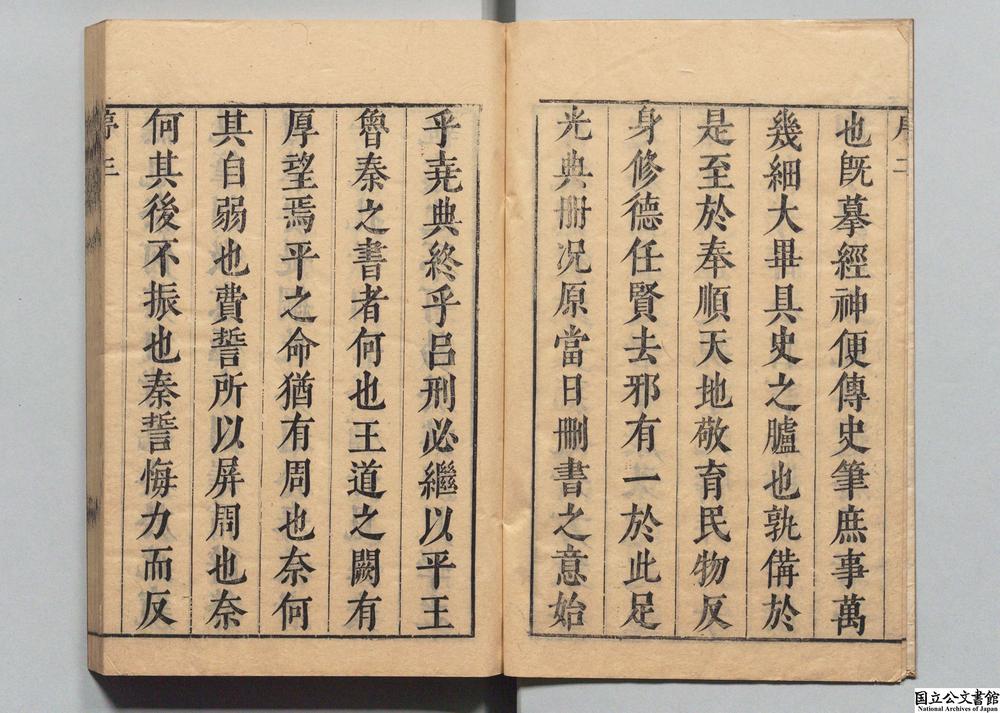 也既摹經神便傳史筆庶事萬
幾細大畢具史之臚也孰備於
是至於奉順天地敬育民物反
身修德任賢去邪有一於此足
光典册况原當日刪書之意始
乎堯典終乎呂刑必繼以平王
魯秦之書者何也王道之闕有
厚望焉平之命猶有周也奈何
其自弱也費誓所以屏周也奈
何其後不振也秦誓悔力而反
国立公文書館
National Archives of Japan